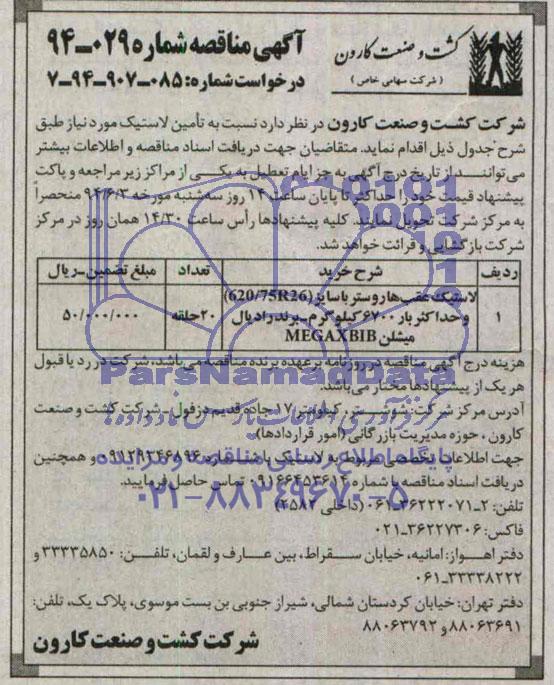 کشت و صنعت کارون
( شرکت سهامی خاص )
آگهی مناقصه شماره ۰۲۹-۹۴
درخواست شماره: ۰۸۵-۹۰۷-۹۴-۷
شرکت کشت و صنعت کارون در نظر دارد نسبت به تأمین لاستیک مورد نیاز طبق
شرح جدول ذیل اقدام نماید. متقاضیان جهت دریافت اسناد مناقصه و اطلاعات بیشتر
می‌توانند از تاریخ درج آگهی به جز ایام تعطیل به یکی از مراکز زیر مراجعه و پاکت
پیشنهاد قیمت خود را حداکثر تا پایان ساعت ۱۴ روز سه‌شنبه مورخه ۹۴/۶/۳ منحصراً
به مرکز شرکت تحویل نمایند. کلیه پیشنهادها رأس ساعت ۱۴/۳۰ همان روز در مرکز
شرکت بازگشایی و قرائت خواهد شد.
ردیف شرح خرید تعداد مبلغ تضمین-ریال
۱ لاستیک عقب هاروستر با سایز (620/75R26) و حداکثر بار ۶۷۰۰ کیلوگرم-برند رادیال میشلن MEGAXBIB ۲۰حلقه ۵۰/۰۰۰/۰۰۰
هزینه درج آگهی مناقصه در روزنامه بر عهده برنده مناقصه می‌باشد، شرکت در رد یا قبول
هر یک از پیشنهادها مختار می‌باشد.
آدرس مرکز شرکت: شوشتر، کیلومتر ۱۷ جاده قدیم دزفول-شرکت کشت و صنعت
کارون ، حوزه مدیریت بازرگانی (امور قراردادها)
جهت اطلاعات تخصصی مربوط به لاستیک با شماره ۰۹۱۲۹۳۴۶۸۹۶ و همچنین
دریافت اسناد مناقصه با شماره ۰۹۱۶۶۴۵۳۶۱۴ تماس حاصل فرمایید.
تلفن: ۲-۳۶۲۲۲۰۷۱-۰۶۱ (داخلی ۲۵۸۲)
فاکس: ۳۶۲۲۷۳۰۶-۰۲۱
دفتر اهواز: امانیه، خیابان سقراط، بین عارف و لقمان، تلفن: ۳۳۳۳۵۸۵۰ و
۳۳۳۳۸۲۲۲-۰۶۱
دفتر تهران: خیابان کردستان شمالی، شیراز جنوبی بن بست موسوی، پلاک یک، تلفن:
۸۸۰۶۳۶۹۱ و ۸۸۰۶۳۷۹۲
شرکت کشت و صنعت کارون
ParsNamadData
پایگاه اطلاع رسانی مناقصات و مزایده
۰۲۱-۸۸۳۴۹۶۷۰-۵